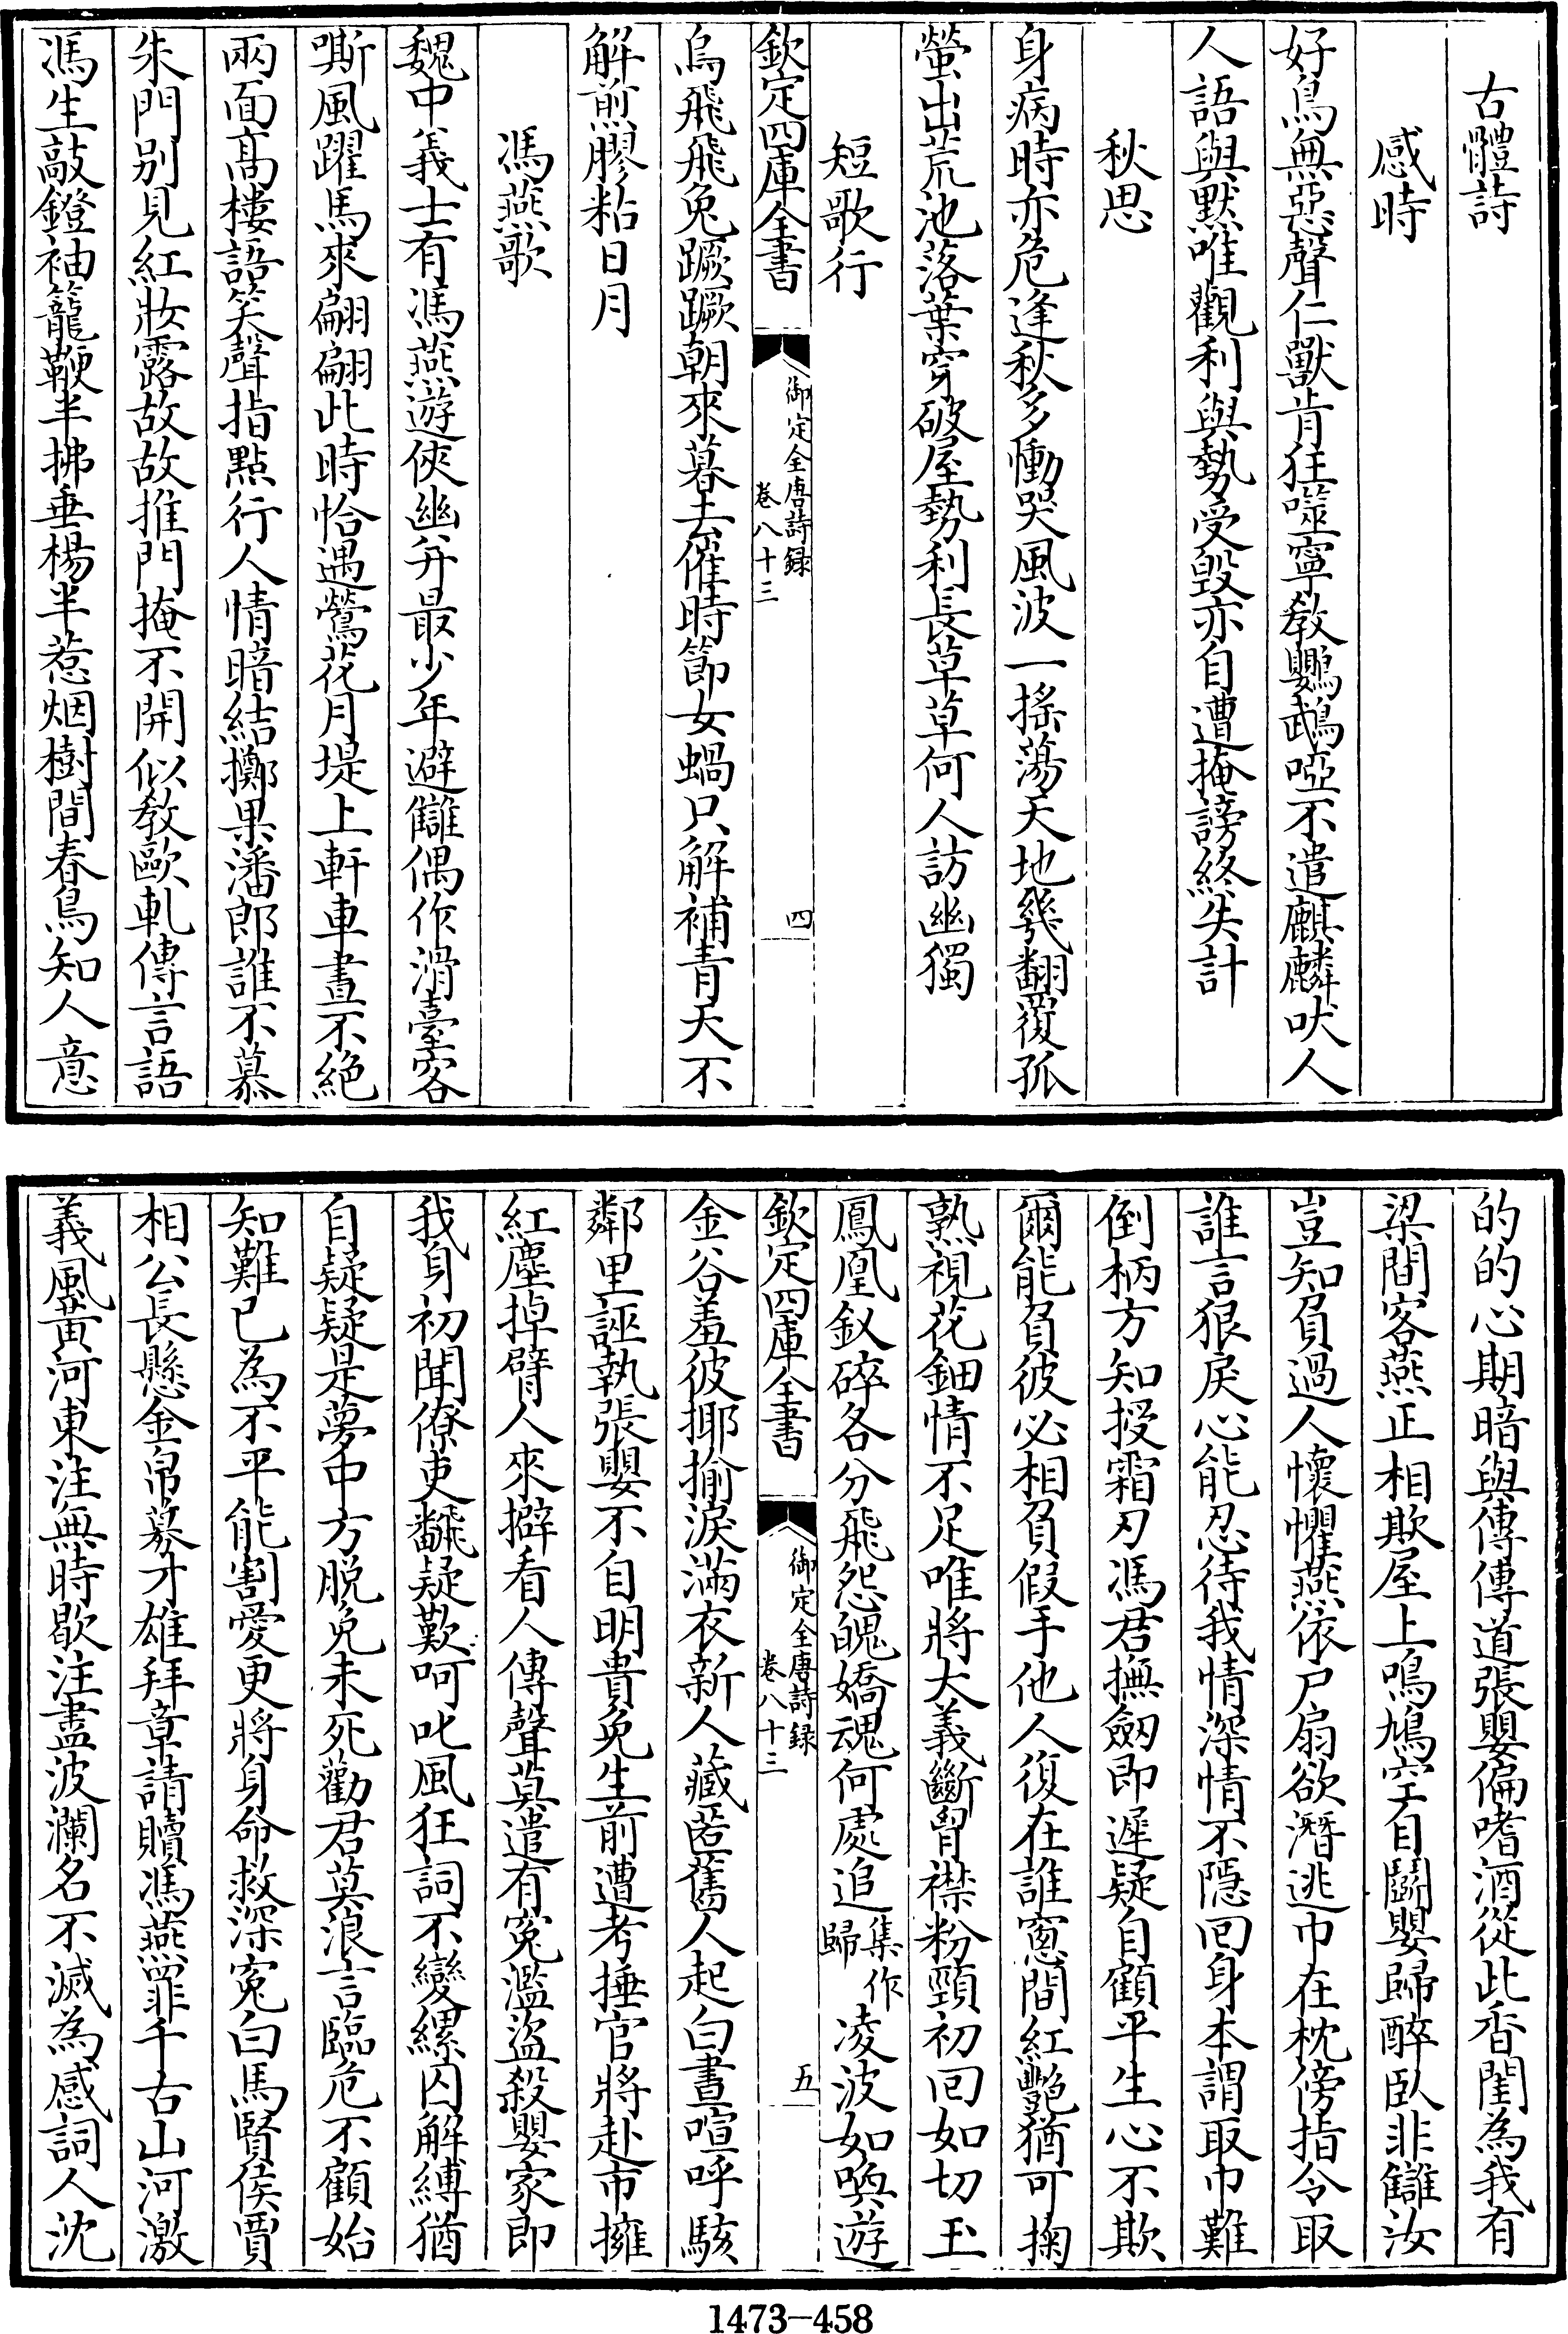 古體詩
感時
好鳥無惡聲仁獸肯狂噬寧教鸚鵡啞不遣麒麟吠人
人語與默唯觀利與勢受毀亦自遭掩謗終失計
秋思
身病時亦危逢秋多慟哭風波一搖蕩天地幾翻覆孤
螢出荒池落葉穿破屋勢利長草草何人訪幽獨
短歌行
欽定四庫全書
御定全唐詩録
卷八十三
四
烏飛飛兔蹶蹶朝來暮去催時節女蝸只解補青天不
解煎膠粘日月
馮燕歌
魏中義士有馮燕遊俠幽并最少年避讎偶作滑臺客
嘶風躍馬來翩翩此時恰遇鶯花月堤上軒車晝不絶
兩面髙樓語笑聲指點行人情暗結擲果潘郎誰不慕
朱門别見紅妝露故故推門掩不開似教歐軋傳言語
馮生敲鐙袖籠鞭半拂垂楊半惹烟樹間春鳥知人意
的的心期暗與傳傳道張嬰偏嗜酒從此香閨為我有
梁間客燕正相欺屋上鳴鳩空自鬭嬰歸醉臥非讎汝
豈知負過人懷懼燕依戸扇欲潛逃巾在枕傍指令取
誰言狠戾心能忍待我情深情不隱回身本謂取巾難
倒柄方知授霜刃馮君撫劒即遲疑自顧平生心不欺
爾能負彼必相負假手他人復在誰窻間紅艷猶可掬
熟視花鈿情不足唯將大義斷胷襟粉頸初回如切玉
鳳凰釵碎各分飛怨魄嬌魂何處追集作歸凌波如喚遊
欽定四庫全書
御定全唐詩録
卷八十三
五
金谷羞彼揶揄淚滿衣新人藏匿舊人起白晝喧呼駭
鄰里誣執張嬰不自明貴免生前遭考捶官將赴市擁
紅塵掉臂人來擗看人傳聲莫遣有寃濫盜殺嬰家即
我身初聞僚吏翻疑歎呵叱風狂詞不變縲囚解縛猶
自疑疑是夢中方脱免未死勸君莫浪言臨危不顧始
知難已為不平能割愛更將身命救深寃白馬賢侯賈
相公長懸金帛募才雄拜章請贖馮燕罪千古山河激
義風黄河東注無時歇注盡波瀾名不滅為感詞人沈
1473-458